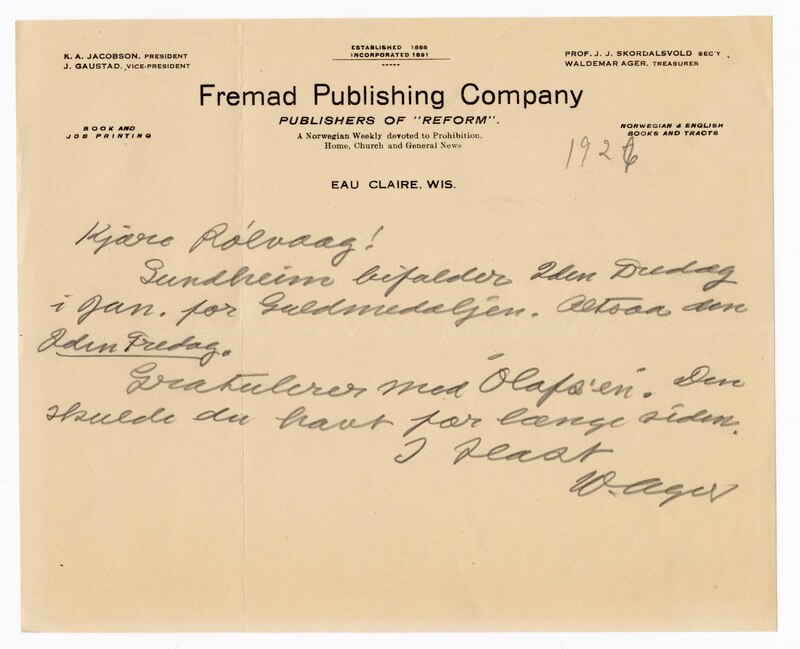 K. A. JACOBSON, PRESIDENT
J. GAUSTAD, VICE-PRESIDENT
ESTABLISHED 1888
INCORPORATED 1891
PROF. J. J. SKORDALSVOLD SEC'Y
WALDEMAR AGER, TREASURER
Fremad Publishing Company
PUBLISHERS OF "REFORM".
BOOK AND
JOB PRINTING
A Norwegian Weekly devoted to Prohibition,
Home, Church and General News
NORWEGIAN & ENGLISH
BOOKS AND TRACTS
1926
EAU CLAIRE, WIS.
Kjære Rölvaag!
Sundheim bifalder 2den Fredag
i Jan. for Guldmedaljen. Altsaa den
2den Fredag.
Gratulerer med "Olafs'en". Den
skulde du havt for længe siden.
I Hast
W. Ager